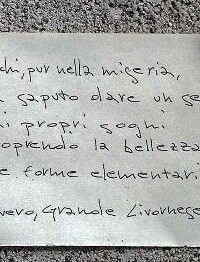 chi, pur nella miseria,
saputo dare un se
i propri sogni
oprendo la bellezza
e forme elementari
vero, Grande Livornese